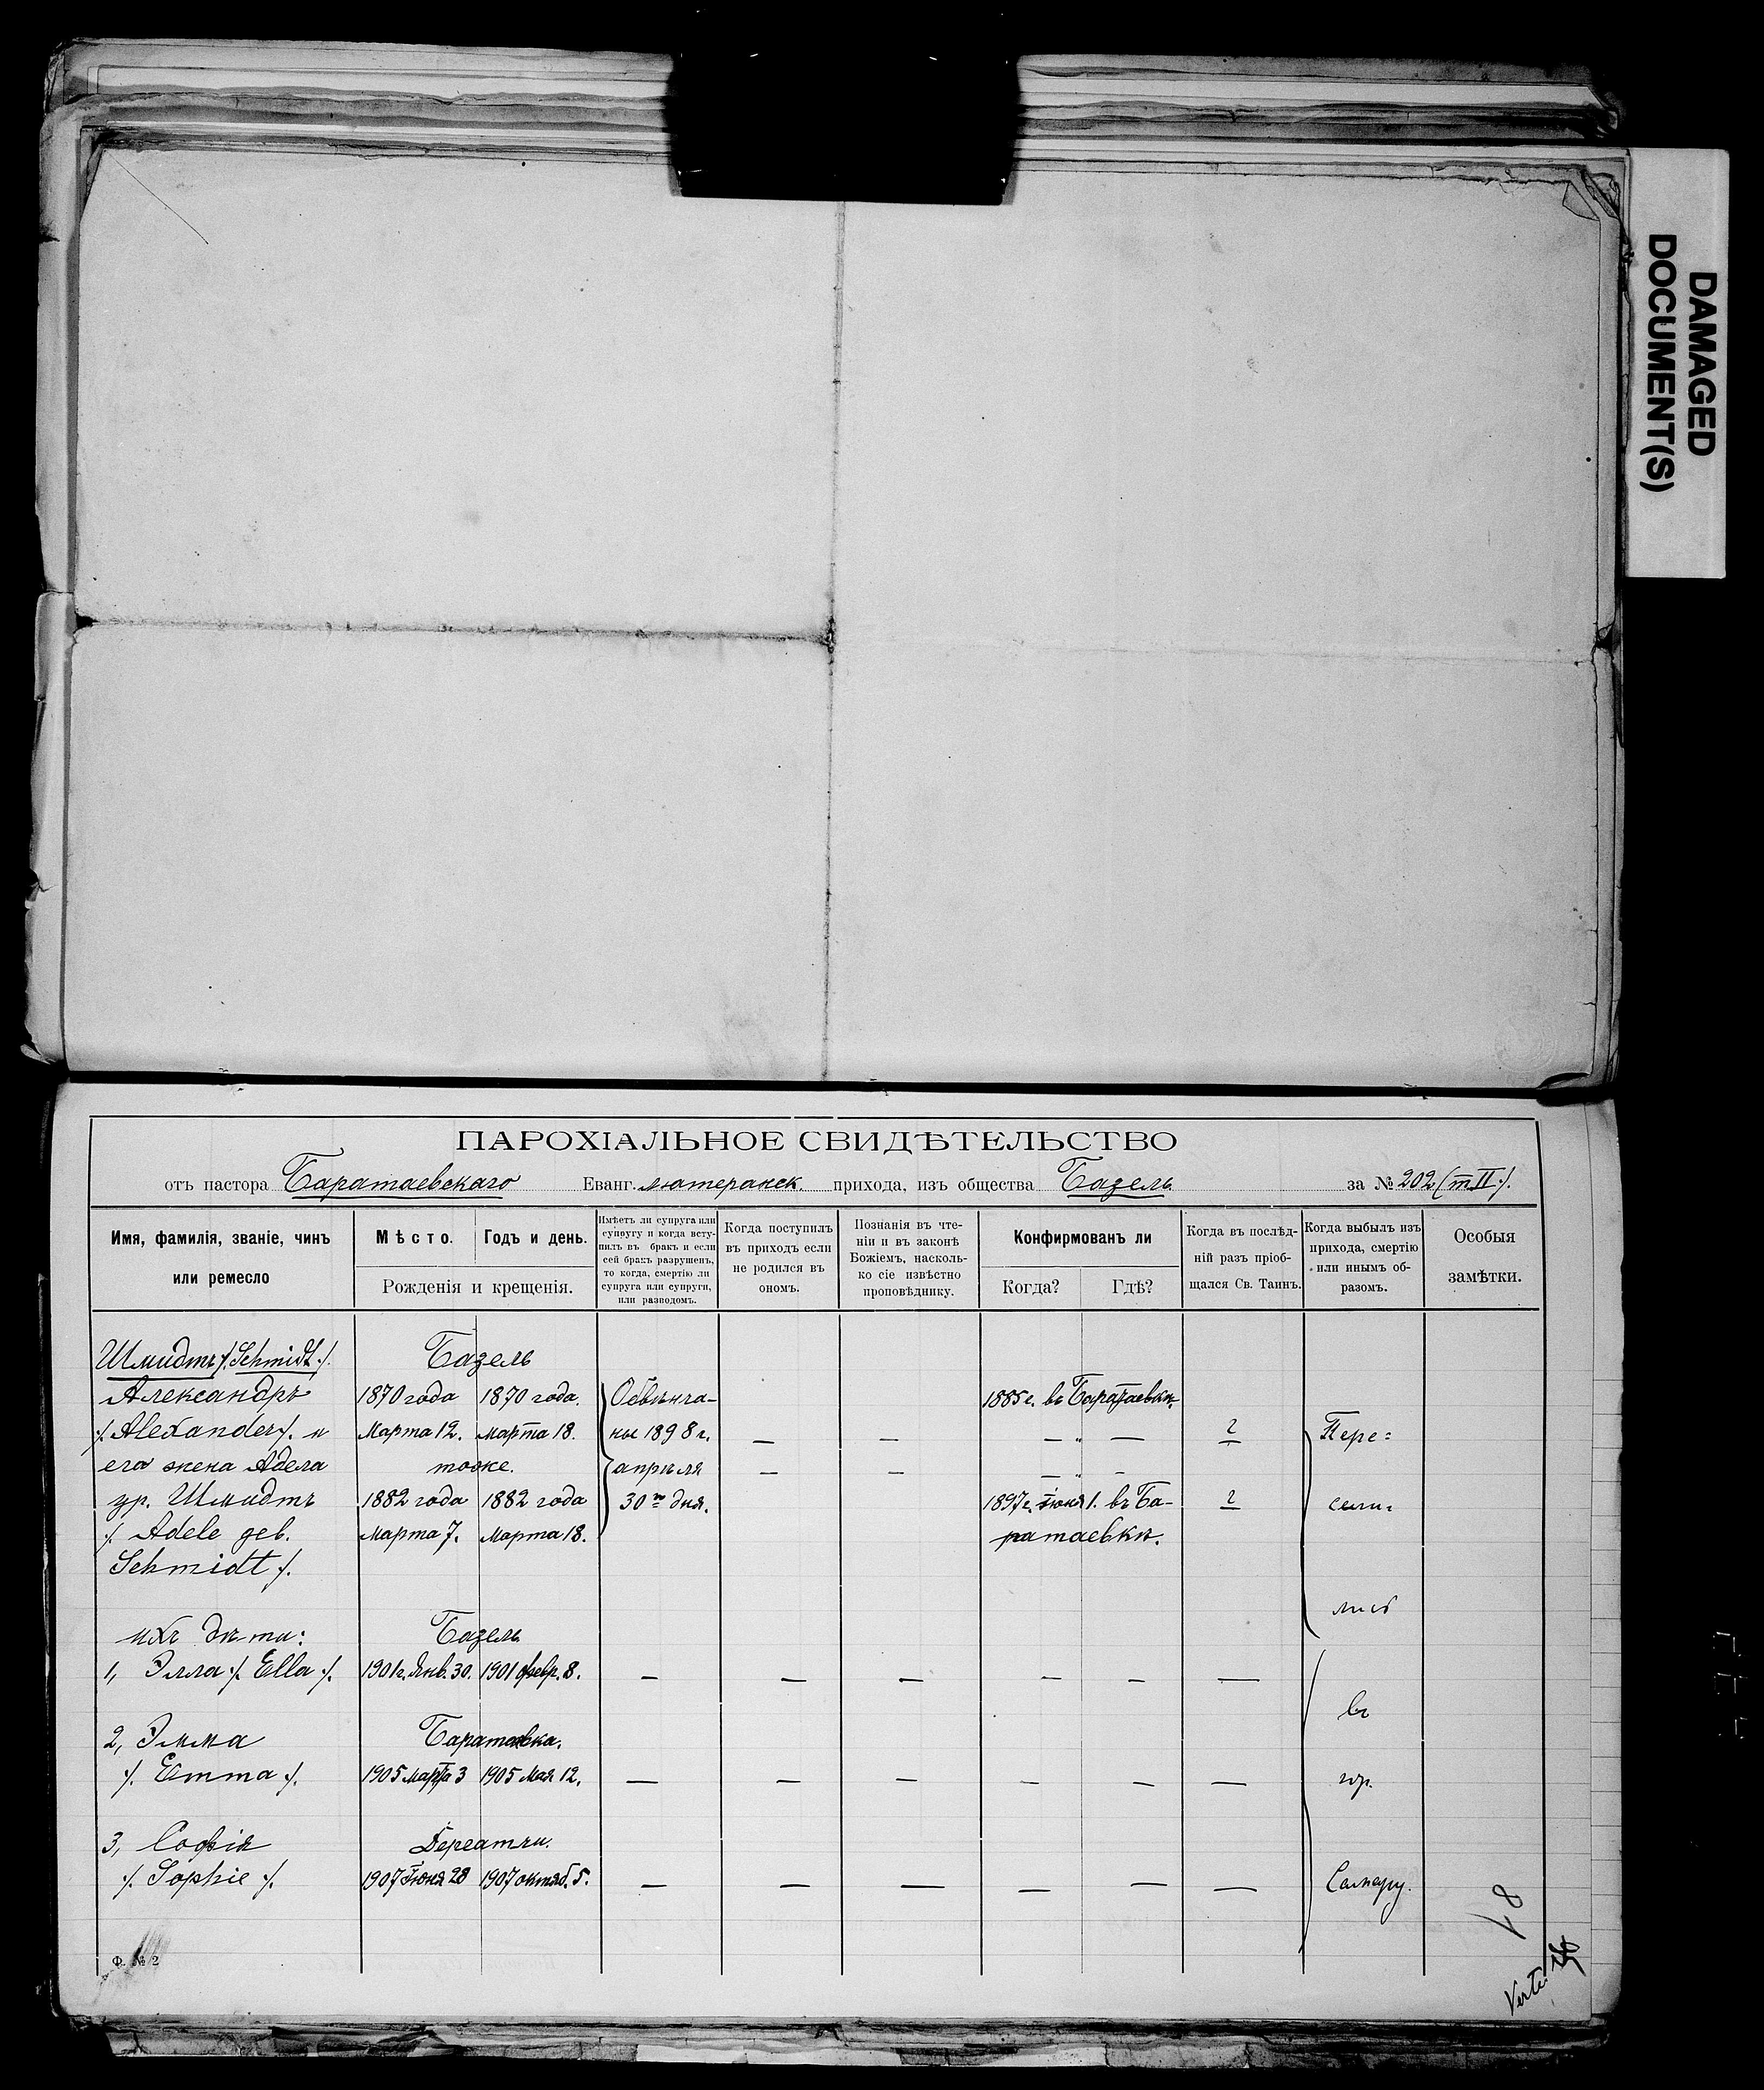 DAMAGED
DOCUMENT(S)
ПАРОХІАЛЬНОЕ СВИДѢТЕЛЬСТВО
отъ пастора Баратаевскаго Еванг. лютеранск. прихода, изъ общества Базель за № 202 (т II).
Имя, фамилія, званіе, чинъ
или ремесло
Мѣсто.
Годъ и день.
Рожденія и крещенія.
Имѣетъ ли супруга или
супругу и когда всту-
пилъ въ бракъ и если
сей бракъ разрушенъ,
то когда, смертію ли
супруга или супруги,
или разводомъ.
Когда поступилъ
въ приходъ если
не родился въ
ономъ.
Познанія въ чте-
ніи и въ законѣ
Божіемъ, насколь-
ко сіе извѣстно
проповѣднику.
Конфирмованъ ли
Когда?
Гдѣ?
Когда въ послѣд-
ній разъ пріоб-
щался Св. Таинъ.
Когда выбылъ изъ
прихода, смертію
или инымъ об-
разомъ.
Особыя
замѣтки.
Шмидтъ ./. Schmidt ./. Базель
Александръ 1870 года 1870 года. Обвѣнча- 1885 г. въ Баратаевкѣ.
./. Alexander ./. и Марта 12. марта 18. ны 1898 г. — — — " — 2 Пере=
его жена Адела тоже. апрѣля — — — " —
ур. Шмидтъ 1882 года 1882 года 30го дня. 1897 г. Іюня 1. въ Ба- 2 сели=
./. Adele geb. Марта 7. Марта 18. ратаевкѣ.
Schmidt ./.
лись
ихъ дѣти: Базель
1, Элла ./. Ella ./. 1901 г. Янв. 30. 1901 февр. 8. — — — — — —
въ
2, Эмма Баратаевка.
./. Emma ./. 1905 марта 3 1905 Мая 12. — — — — — — гор.
3, Софія
./. Sophie ./. 1907 Іюня 28 1907 октяб. 5. — — — — — — Самару.
48
Ф. № 2
Verte